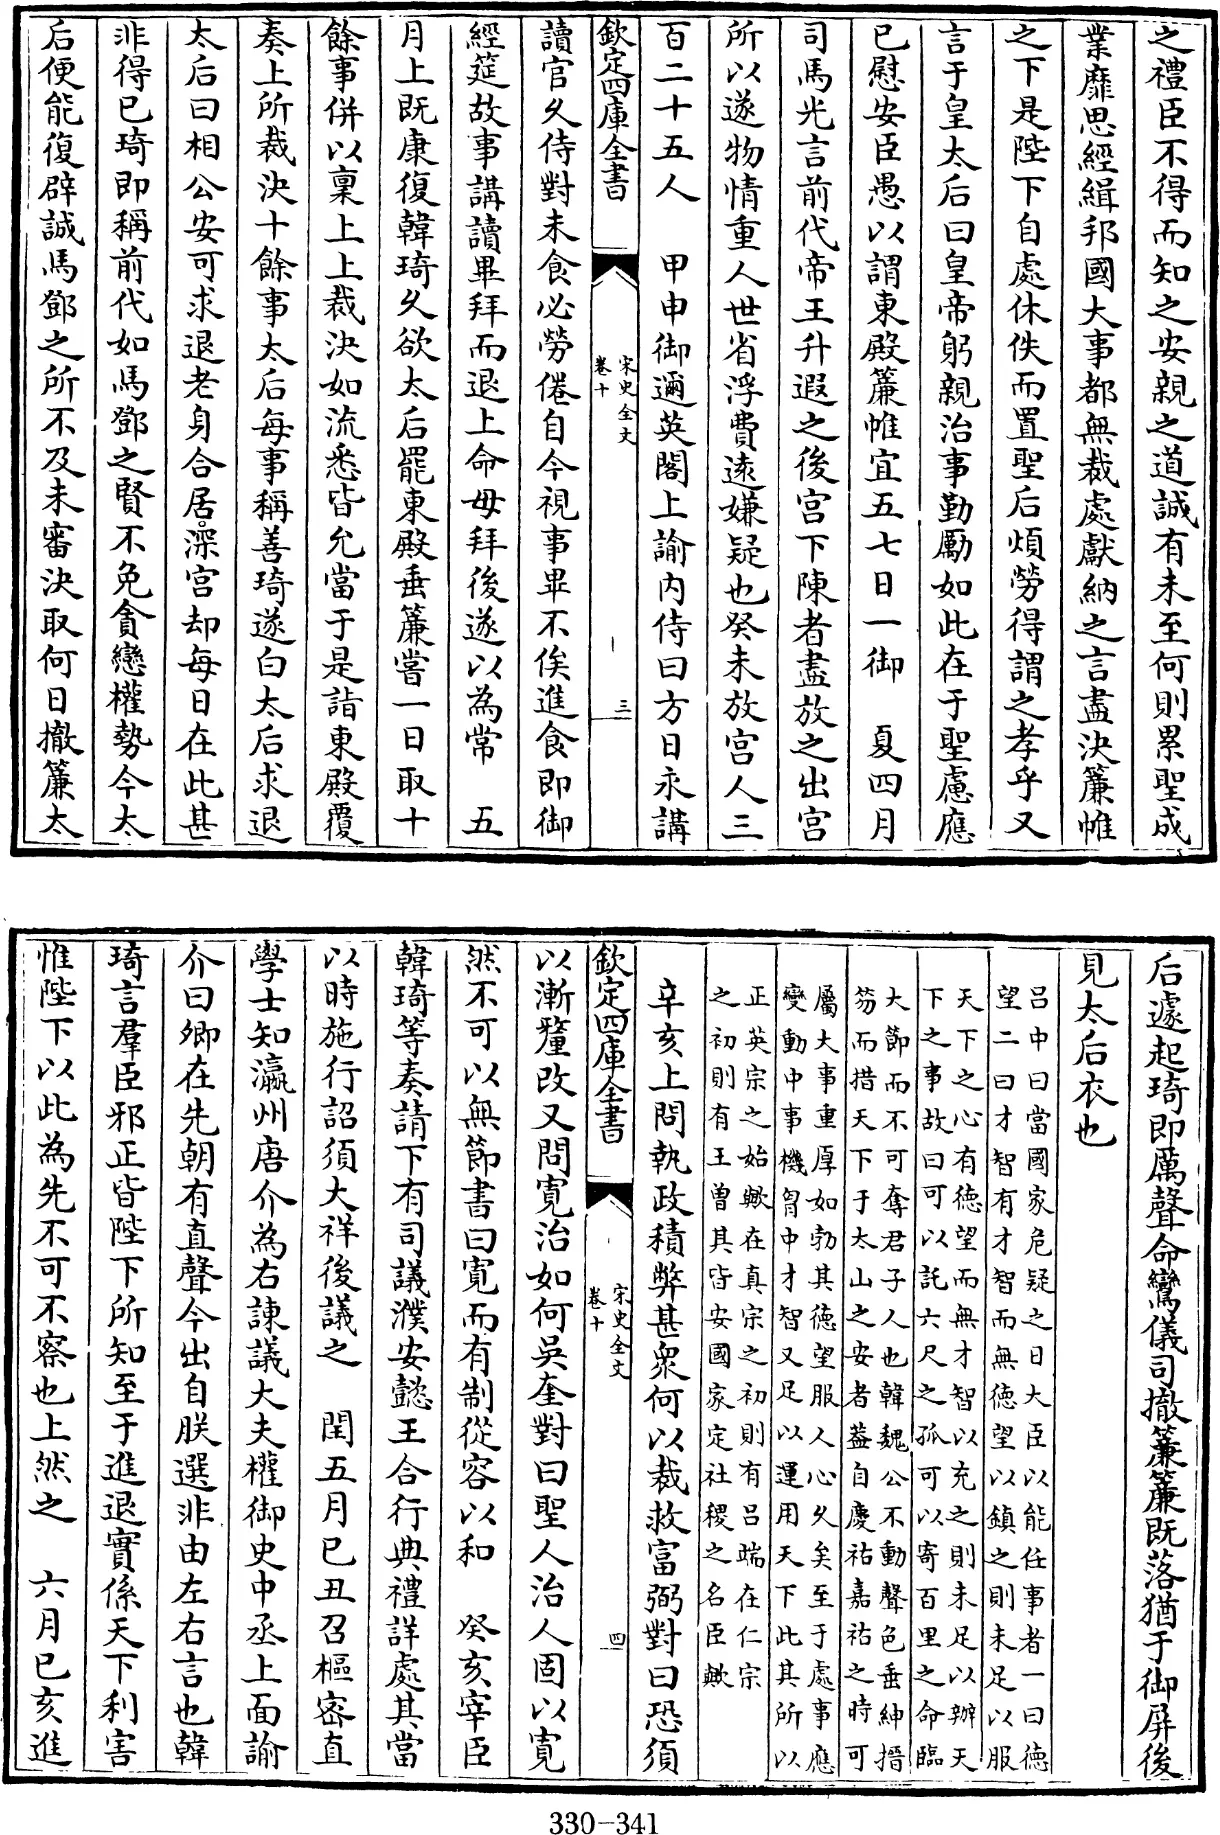 之禮臣不得而知之安親之道誠有未至何則累聖成
業靡思經緝邦國大事都無裁處獻納之言盡決簾帷
之下是陛下自處休佚而置聖后煩勞得謂之孝乎又
言于皇太后曰皇帝躬親治事勤勵如此在于聖慮應
已慰安臣愚以謂東殿簾帷宜五七日一御　夏四月
司馬光言前代帝王升遐之後宫下陳者盡放之出宫
所以遂物情重人世省浮費遠嫌疑也癸未放宫人三
百二十五人　甲申御邇英閣上諭内侍曰方日永講
欽定四庫全書
宋史全文
卷十
三
讀官久侍對未食必勞倦自今視事畢不俟進食即御
經筵故事講讀畢拜而退上命毋拜後遂以為常　五
月上既康復韓琦久欲太后罷東殿垂簾嘗一日取十
餘事併以稟上上裁決如流悉皆允當于是詣東殿覆
奏上所裁決十餘事太后每事稱善琦遂白太后求退
太后曰相公安可求退老身合居深宫却每日在此甚
非得已琦即稱前代如馬鄧之賢不免貪戀權勢今太
后便能復辟誠馬鄧之所不及未審決取何日撤簾太
后遽起琦即厲聲命鸞儀司撤簾簾既落猶于御屏後
見太后衣也
吕中曰當國家危疑之日大臣以能任事者一曰德
望二曰才智有才智而無德望以鎮之則未足以服
天下之心有德望而無才智以充之則未足以辦天
下之事故曰可以託六尺之孤可以寄百里之命臨
大節而不可奪君子人也韓魏公不動聲色垂紳搢
笏而措天下于太山之安者葢自慶祐嘉祐之時可
屬大事重厚如勃其德望服人心久矣至于處事應
變動中事機胷中才智又足以運用天下此其所以
正英宗之始歟在真宗之初則有吕端在仁宗
之初則有王曽其皆安國家定社稷之名臣歟
辛亥上問執政積弊甚衆何以裁救富弼對曰恐須
欽定四庫全書
宋史全文
卷十
四
以漸釐改又問寛治如何吳奎對曰聖人治人固以寛
然不可以無節書曰寛而有制從容以和　癸亥宰臣
韓琦等奏請下有司議濮安懿王合行典禮詳處其當
以時施行詔須大祥後議之　閏五月己丑召樞密直
學士知瀛州唐介為右諫議大夫權御史中丞上面諭
介曰卿在先朝有直聲今出自朕選非由左右言也韓
琦言羣臣邪正皆陛下所知至于進退實係天下利害
惟陛下以此為先不可不察也上然之　六月己亥進
330-341